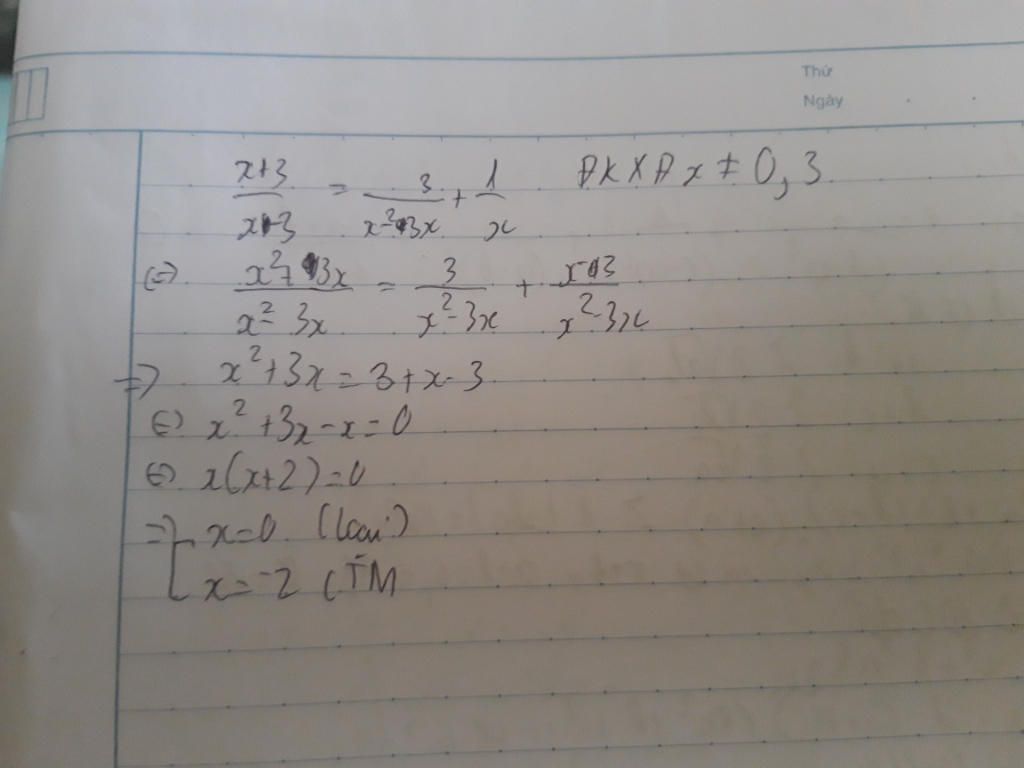 Thứ
Ngày
x+3/x-3 = 3/x²-3x + 1/x ĐKXĐ x ≠ 0, 3
(=) x²+3x/x²-3x = 3/x²-3x + x-3/x²-3x
=> x²+3x=3+x-3
(=) x²+3x-x=0
(=) x(x+2)=0
=> [ x=0 (loại)
x=-2 (TM